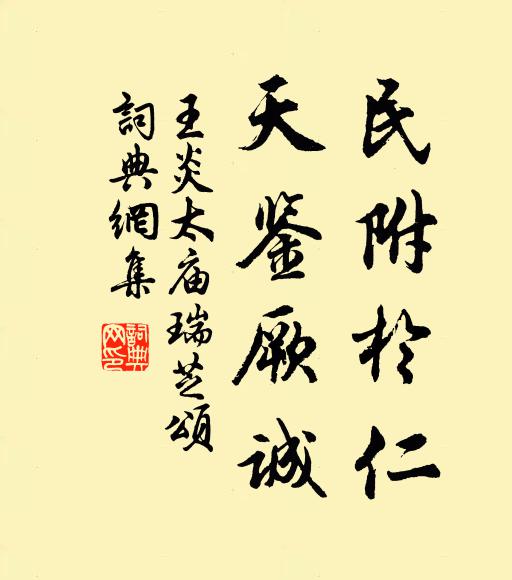 民附於仁
天鉴厥诚
王炎太庙瑞芝頌
詞典網集
詞典网印